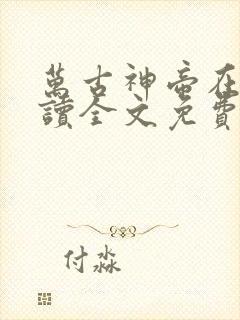 萬古神帝在
讀全文免費
付淼